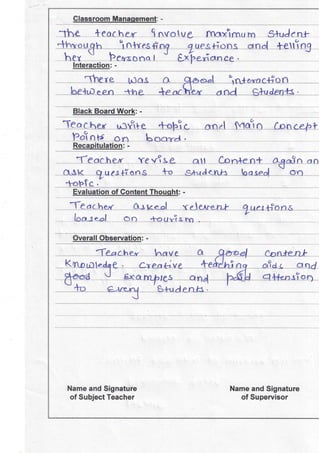 Classroom Management: -
The teacher involve maximum student
through intresting questions and telling
her Personal Experiance.
Interaction: -
There was a good interaction
between the teacher and students.
Black Board Work: -
Teacher write topic and Main Concept
Points on board.
Recapitulation: -
Teacher revise all Content again an
ask questions to students based on
topic.
Evaluation of Content Thought: -
Teacher asked relevent questions
based on tourism.
Overall Observation: -
Teacher have a good content
Knowledge. Creative teaching aids and
good Examples and paid attension
to Every Students.
Name and Signature
of Subject Teacher
Name and Signature
of Supervisor